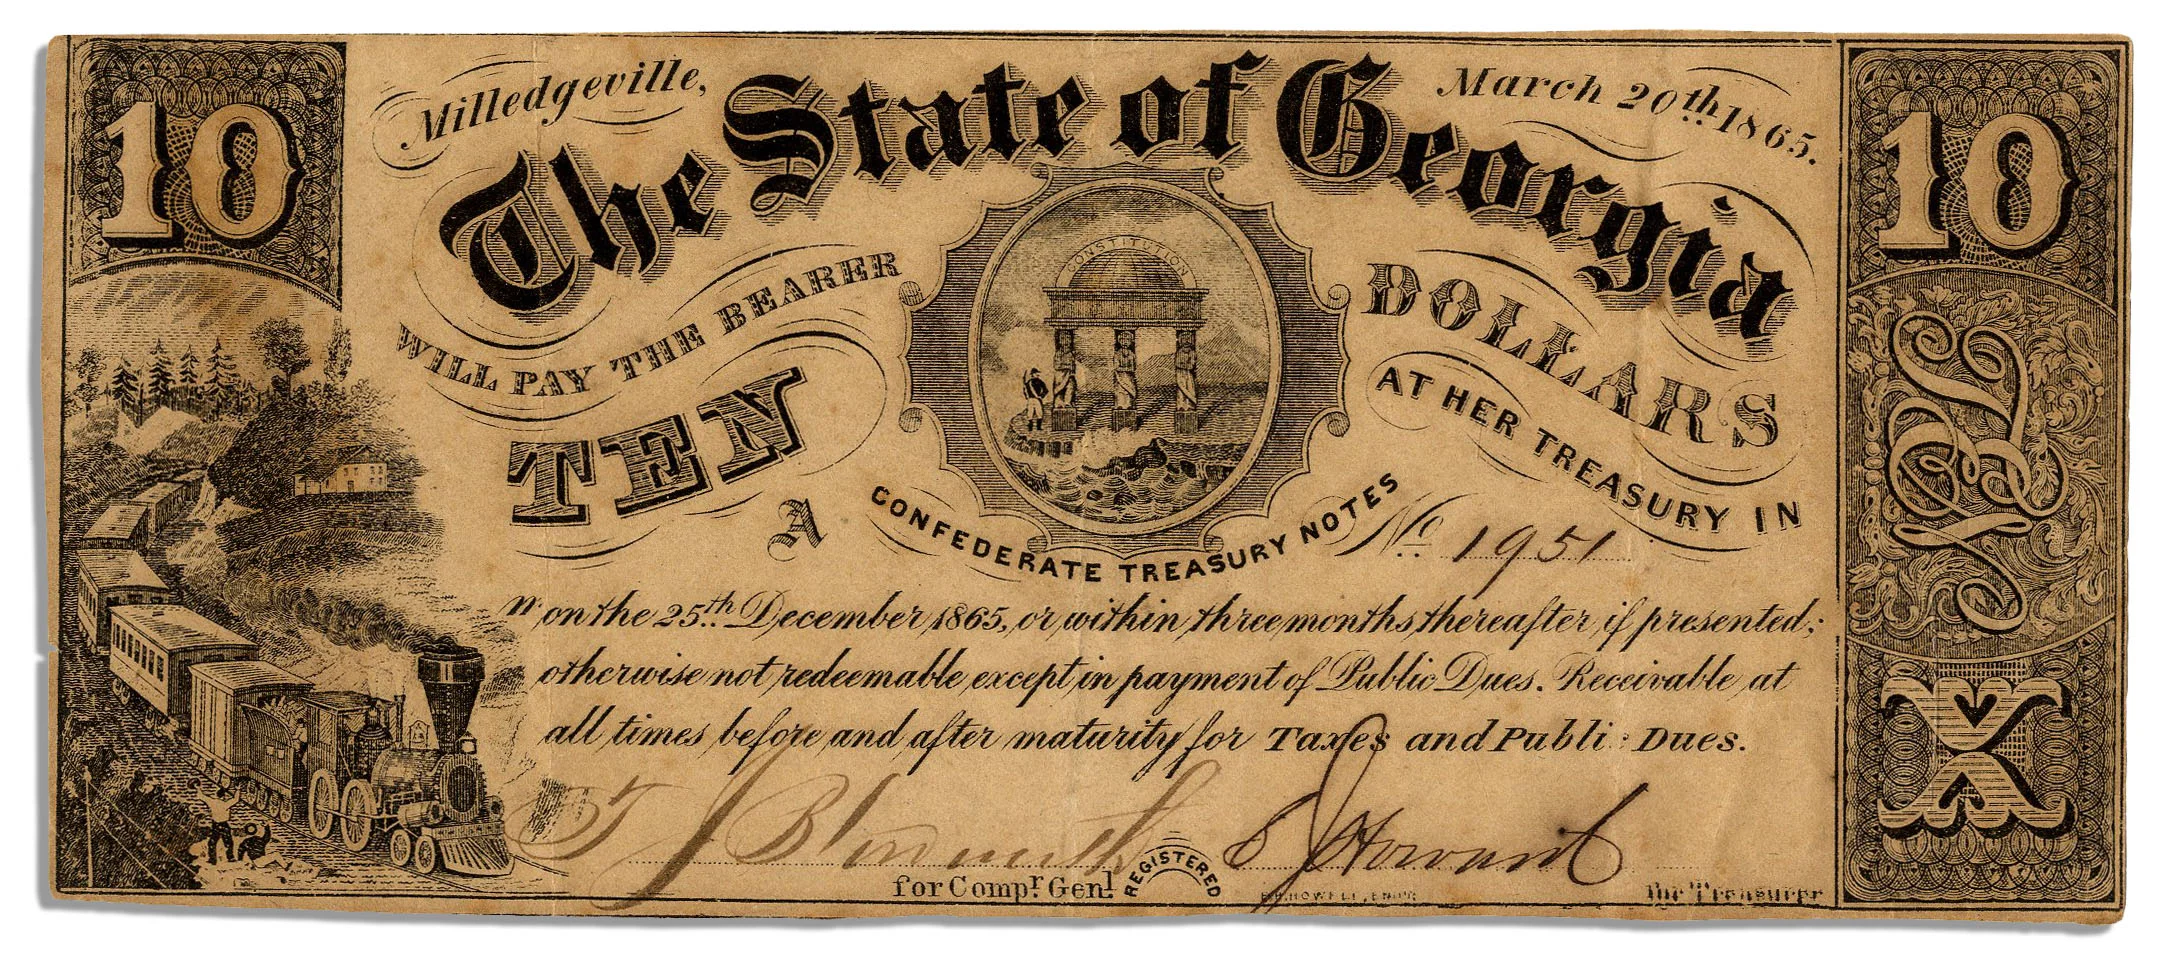 10
Milledgeville,
The State of Georgia
March 20th 1865.
10
CONSTITUTION
WILL PAY THE BEARER
TEN
DOLLARS
AT HER TREASURY IN
A
CONFEDERATE TREASURY NOTES
No 1951
on the 25th December 1865, or within three months thereafter if presented;
otherwise not redeemable except in payment of Public Dues. Receivable at
all times before and after maturity for Taxes and Publi: Dues.
X
T J B
S J Howard
for Compr Genl
REGISTERED
HOWELL, ENGR
for Treasurer